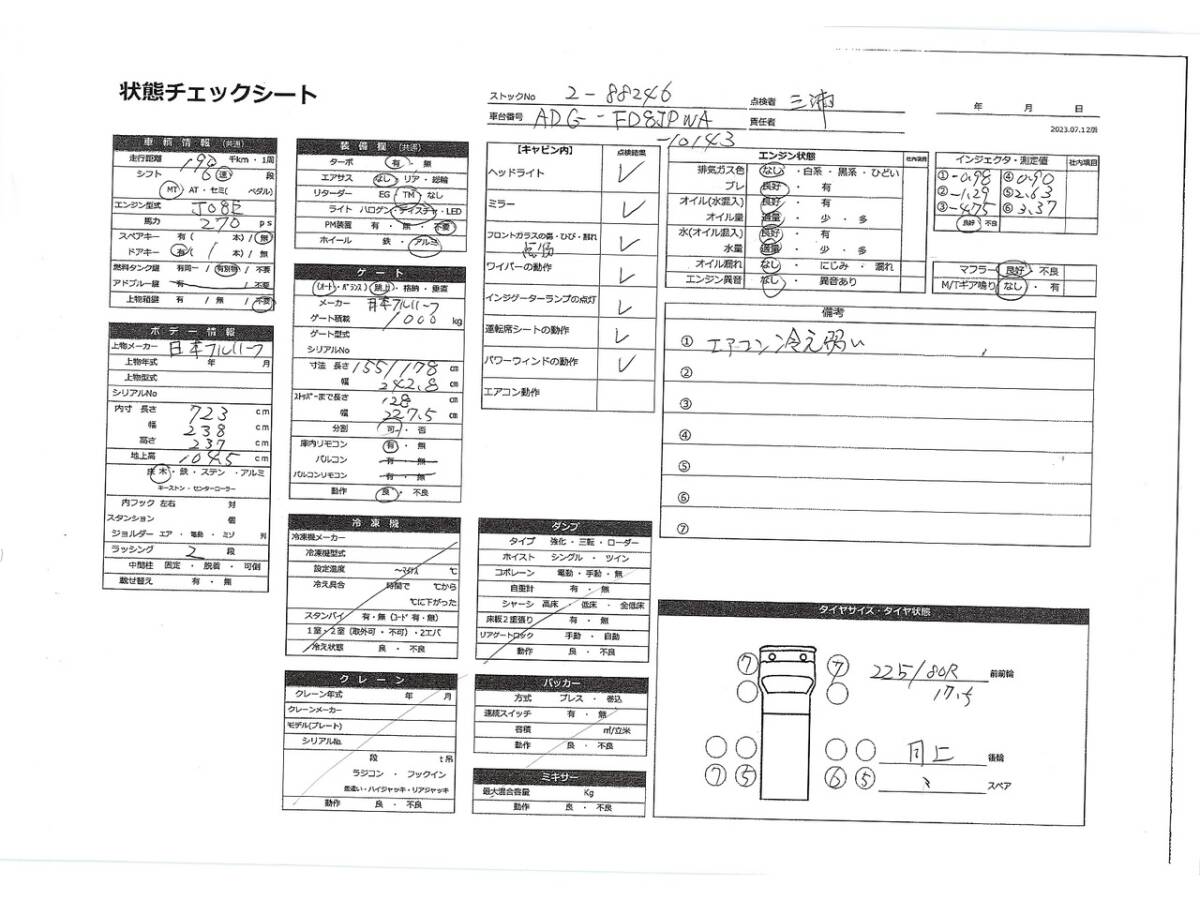 状態チェックシート
ストックNo 2-88246
点検者 三浦
年 月 日
車台番号 ADG-FD8JPWA
-10143
責任者
2023.07.12改
車輌情報 (共通)
走行距離 190 千km・1周
シフト 6 速 段
MT AT・セミ( ペダル)
エンジン型式 J08E
馬力 270 ps
スペアキー 有( 本)/ 無
ドアキー 有( 本)/ 無
燃料タンク鍵 有同一 / 有別物 / 不要
アドブルー鍵 有 / 不要
上物箱鍵 有 / 無 / 不要
ボデー情報
上物メーカー 日本フルハーフ
上物年式 年 月
上物型式
シリアルNo
内寸 長さ 723 cm
幅 238 cm
高さ 237 cm
地上高 104.5 cm
床 木・鉄・ステン・アルミ
キーストン・センターローラー
内フック 左右 対
スタンション 個
ジョルダー エア・電動・ミゾ 列
ラッシング 2 段
中間柱 固定・脱着・可倒
載せ替え 有・無
装備欄 (共通)
ターボ 有・無
エアサス なし・リア・総輪
リターダー EG・TM なし
ライト ハロゲン・ディスチャ・LED
PM装置 有・無・不要
ホイール 鉄・アルミ
ゲート
(オート・バランス) 跳上・格納・垂直
メーカー 日本フルハーフ
ゲート積載 1000 kg
ゲート型式
シリアルNo
寸法 長さ 155/178 cm
幅 242.8 cm
ストッパーまで長さ 128 cm
幅 227.5 cm
分割 可・否
庫内リモコン 有・無
バルコン 有・無
バルコンリモコン 有・無
動作 良・不良
冷凍機
冷凍機メーカー
冷凍機型式
設定温度 ～マイナス ℃
冷え具合 時間で ℃から
℃に下がった
スタンバイ 有・無 (コード 有・無)
1室・2室 (取外可・不可)・2エバ
冷え状態 良・不良
クレーン
クレーン年式 年 月
クレーンメーカー
モデル(プレート)
シリアルNo.
段 t吊
ラジコン・フックイン
差違い・ハイジャッキ・リアジャッキ
動作 良・不良
【キャビン内】 点検結果
ヘッドライト ✓
ミラー ✓
フロントガラスの傷・ひび・割れ ✓
点傷
ワイパーの動作 ✓
インジケーターランプの点灯 ✓
運転席シートの動作 ✓
パワーウィンドの動作 ✓
エアコン動作
ダンプ
タイプ 強化・三転・ローダー
ホイスト シングル・ツイン
コボレーン 電動・手動・無
自重計 有・無
シャーシ 高床・低床・全低床
床板2重張り 有・無
リアゲートロック 手動・自動
動作 良・不良
パッカー
方式 プレス・巻込
連続スイッチ 有・無
容積 ㎥/立米
動作 良・不良
ミキサー
最大混合容量 Kg
動作 良・不良
エンジン状態 社内項目
排気ガス色 なし・白系・黒系・ひどい
ブレ 良好・有
オイル(水混入) 良好・有
オイル量 適量・少・多
水(オイル混入) 良好・有
水量 適量・少・多
オイル漏れ なし・にじみ・漏れ
エンジン異音 なし・異音あり
インジェクタ・測定値 社内項目
①-0.98 ④0.90
②-1.29 ⑤2.63
③-4.75 ⑥3.37
良好 / 不良
マフラー 良好・不良
M/Tギア鳴り なし・有
備考
① エアコン冷え弱い
②
③
④
⑤
⑥
⑦
タイヤサイズ・タイヤ状態
7 7 225/80R 前前輪
17.5
同上 後輪
7 5 6 5 〃 スペア